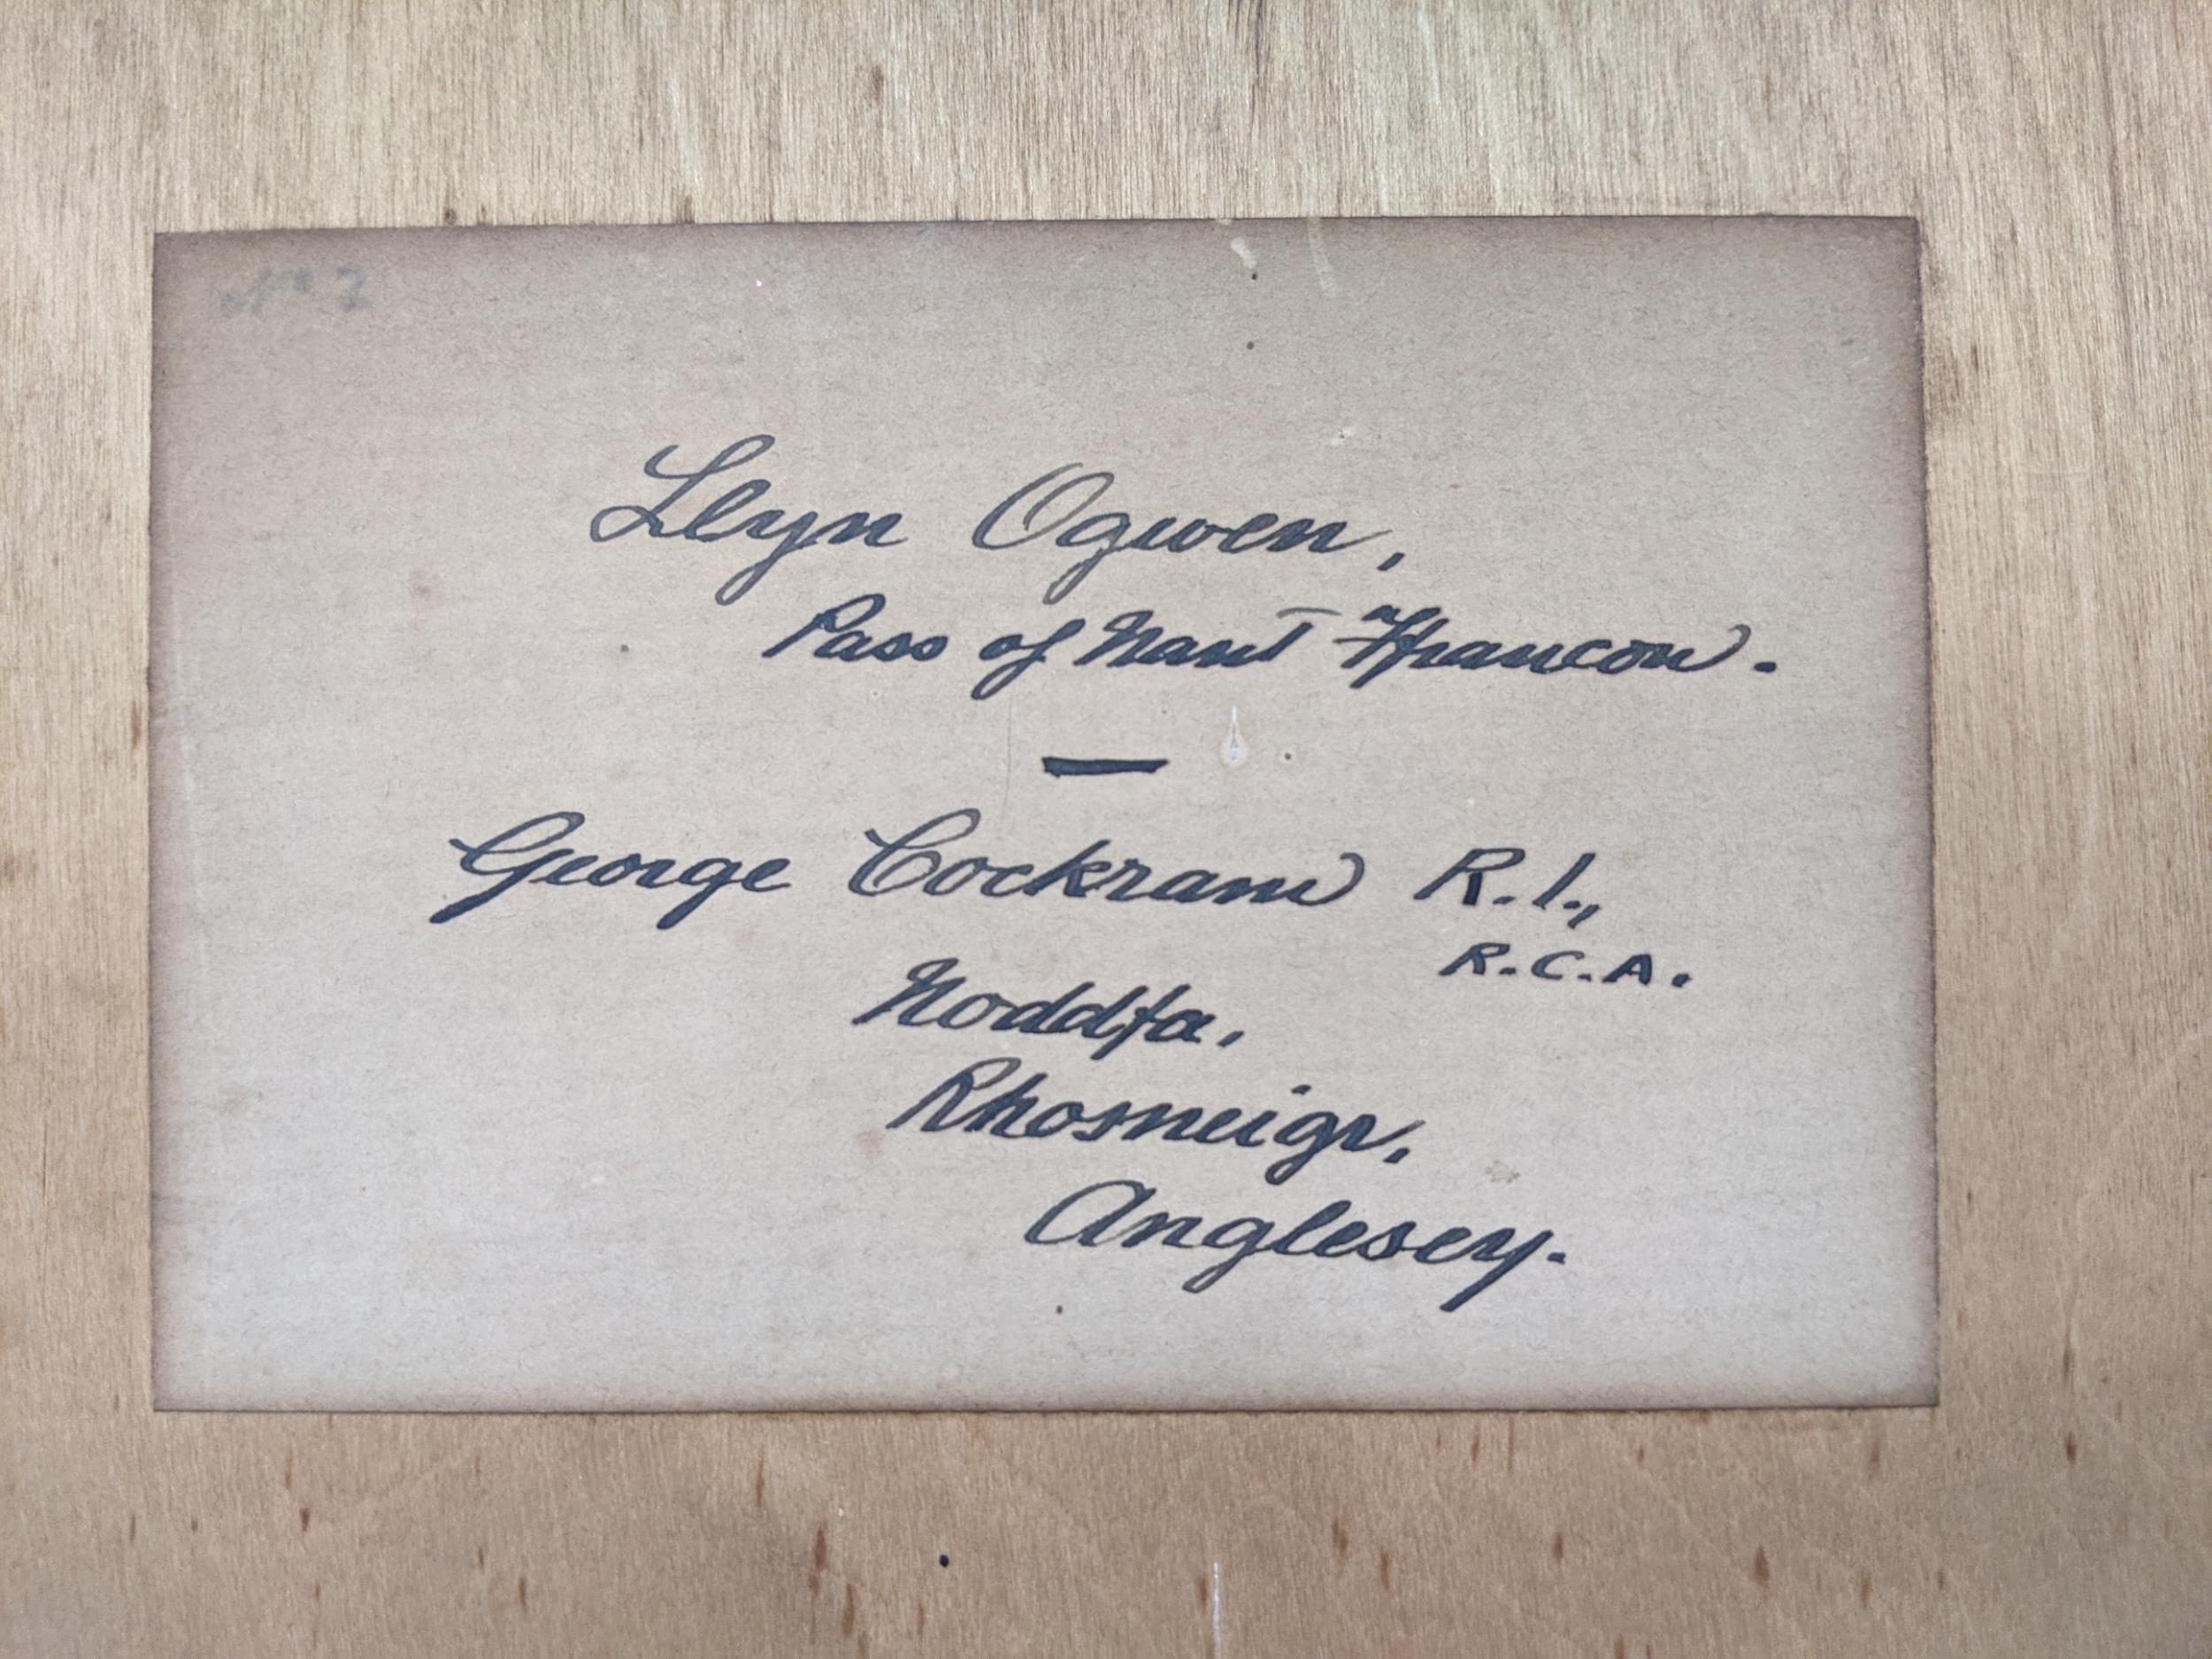 No 7
Llyn Ogwen,
Pass of Nant Ffrancon.
—
George Cockram R.I.,
R.C.A.
Noddfa,
Rhosneigr,
Anglesey.